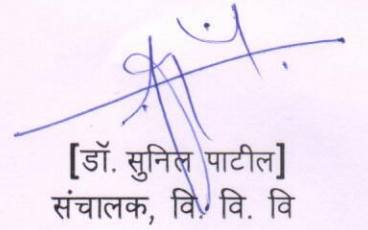 [डॉ. सुनिल पाटील]
संचालक, वि. वि. वि